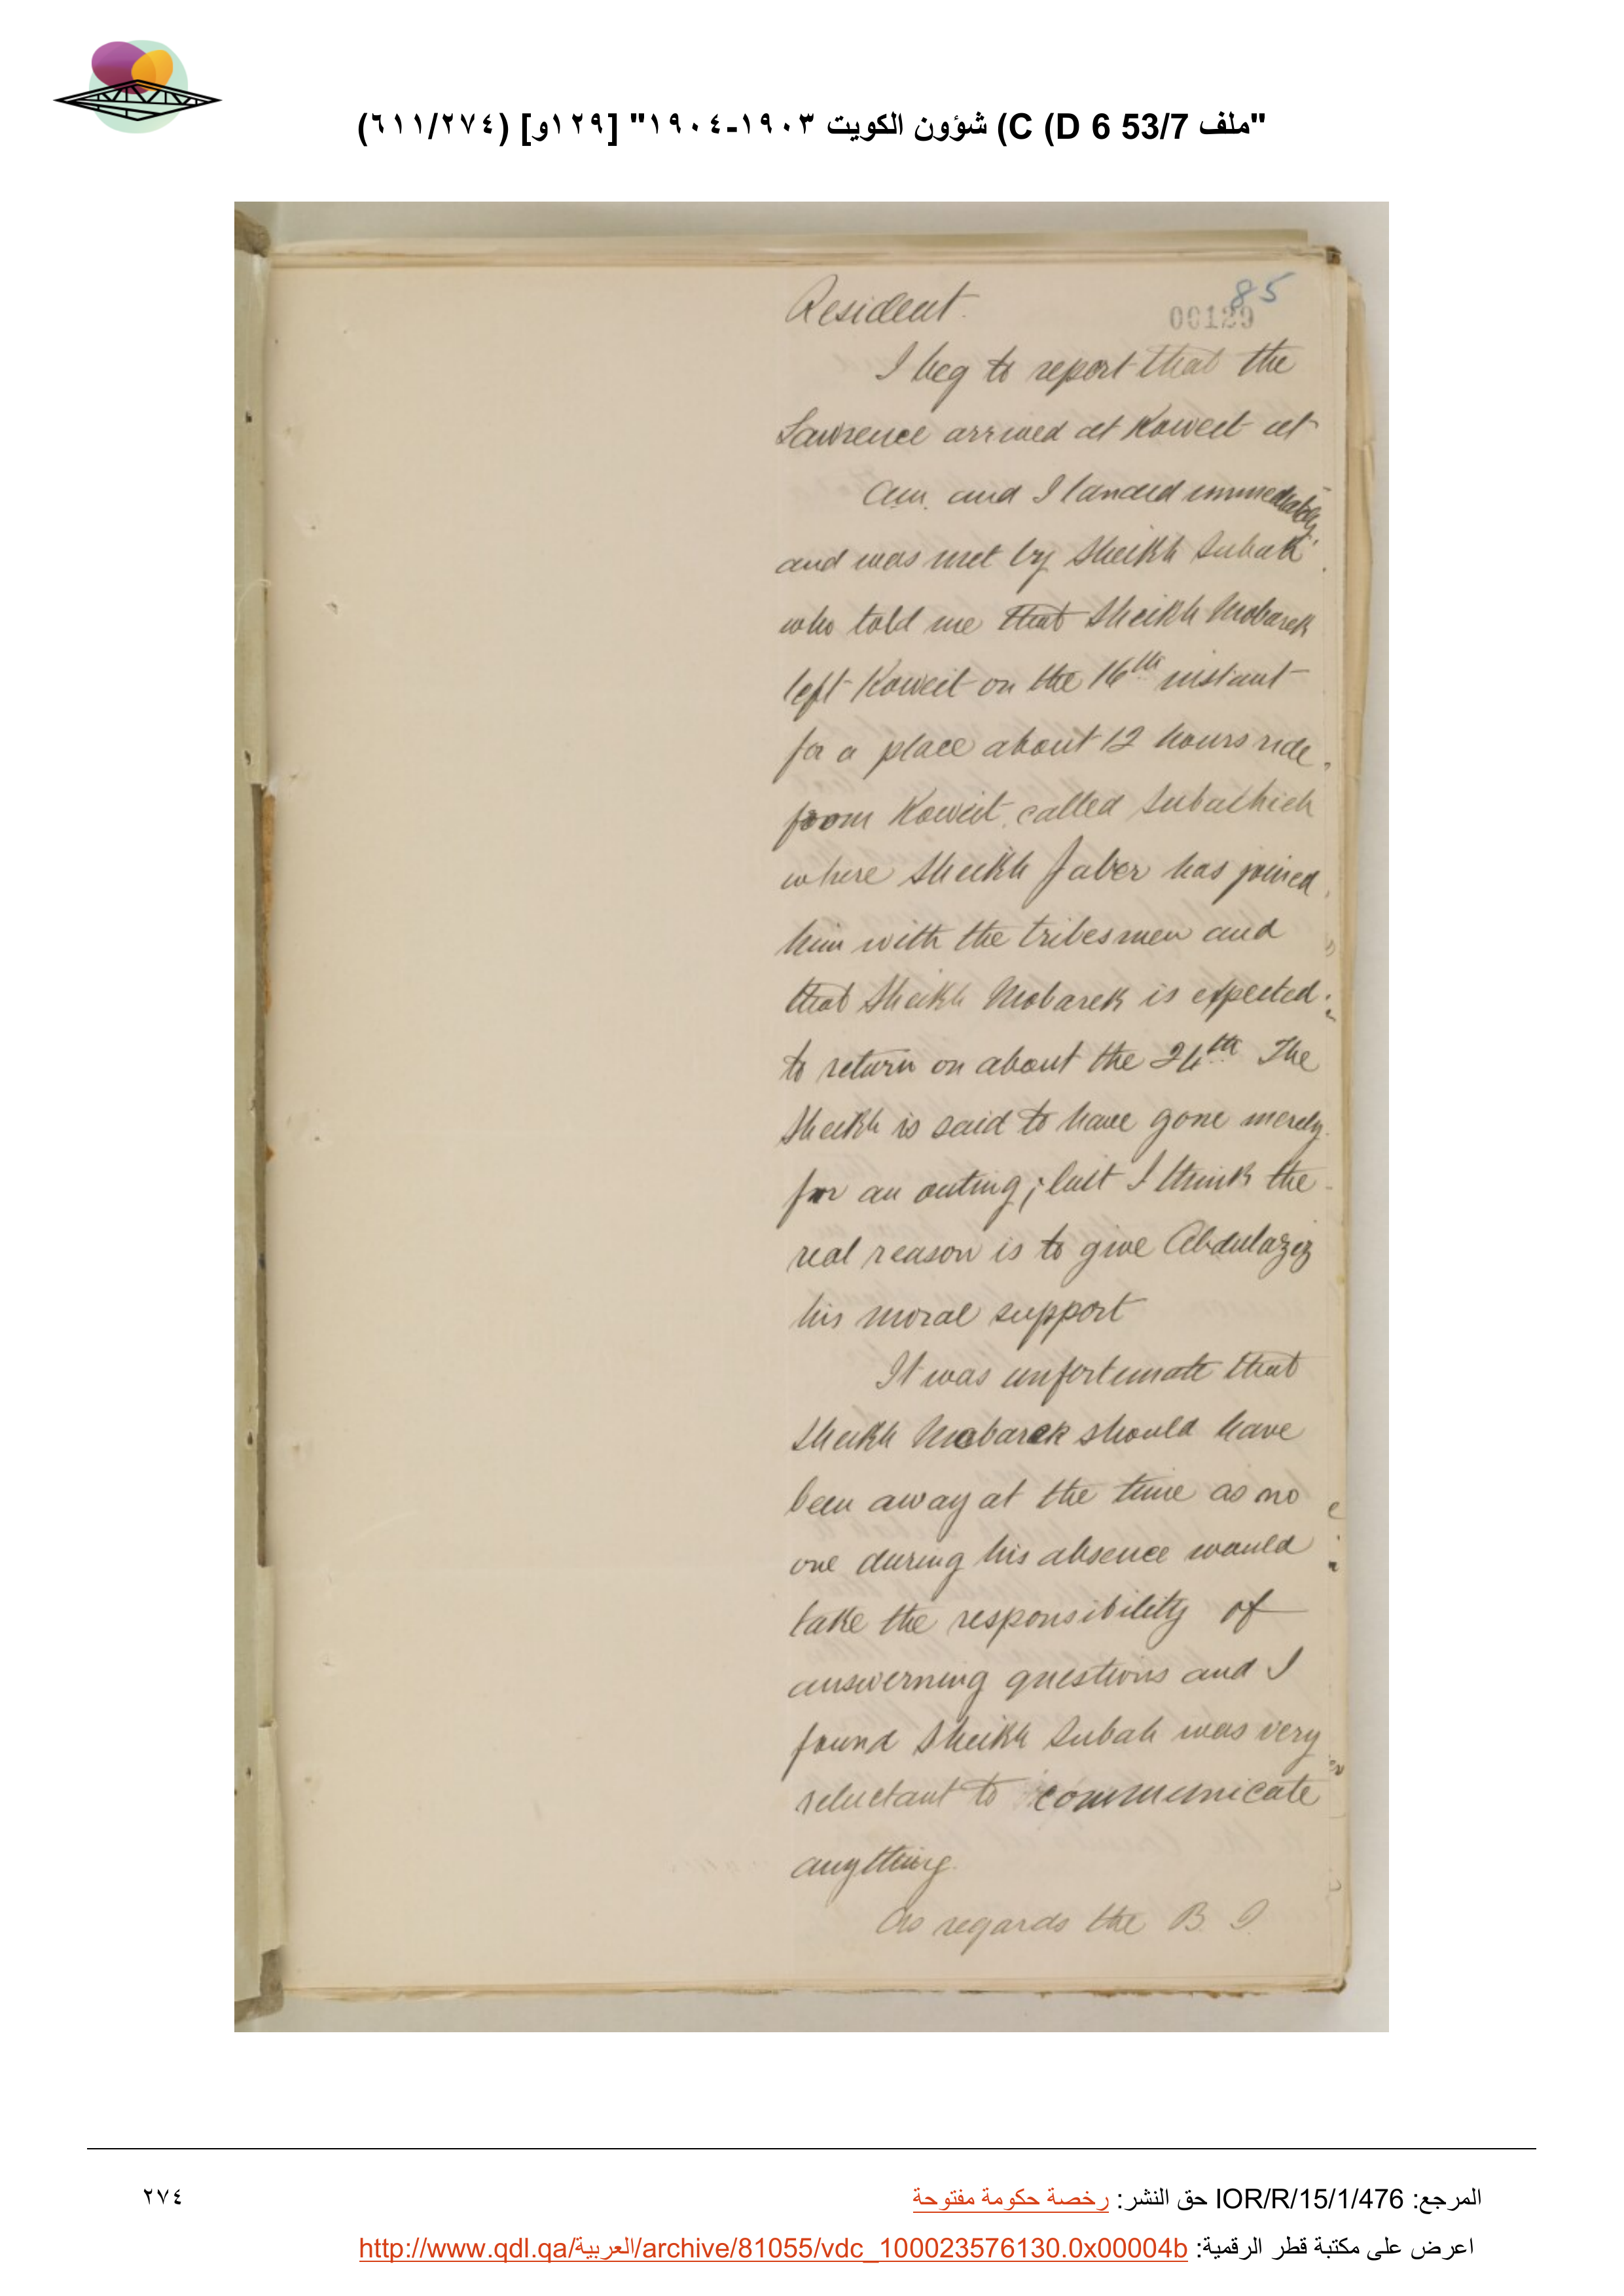 "ملف 53/7 C (D 6) شؤون الكويت ١٩٠٣-١٩٠٤" [١٢٩و] (٦١١/٢٧٤)
85
Resident.
00129
I beg to report that the
Lawrence arrived at Koweit at
am. and I landed immediately
and was met by Sheikh Subah
who told me that Sheikh Mobarek
left Koweit on the 16th instant
for a place about 12 hours ride
from Koweit, called Subaihieh
where Sheikh Jaber has joined
him with the tribesmen and
that Sheikh Mobarek is expected
to return on about the 24th The
Sheikh is said to have gone merely
for an outing; but I think the
real reason is to give Abdulaziz
his moral support
It was unfortunate that
Sheikh Mobarek should have
been away at the time as no
one during his absence would
take the responsibility of
answerning questions and I
found Sheikh Subah was very
reluctant to communicate
anything.
As regards the B. I.
المرجع: IOR/R/15/1/476 حق النشر: رخصة حكومة مفتوحة
٢٧٤
اعرض على مكتبة قطر الرقمية: http://www.qdl.qa/العربية/archive/81055/vdc_100023576130.0x00004b